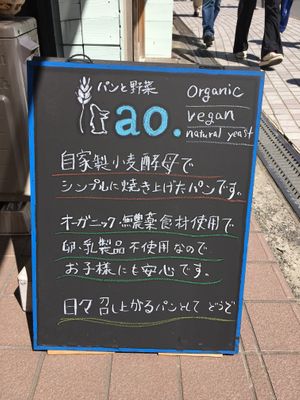 パンと野菜
ao.
organic
vegan
natural yeast
自家製小麦酵母で
シンプルに焼き上げたパンです。
オーガニック・無農薬食材使用で
卵・乳製品不使用なので
お子様にも安心です。
日々召し上がるパンとして どうぞ